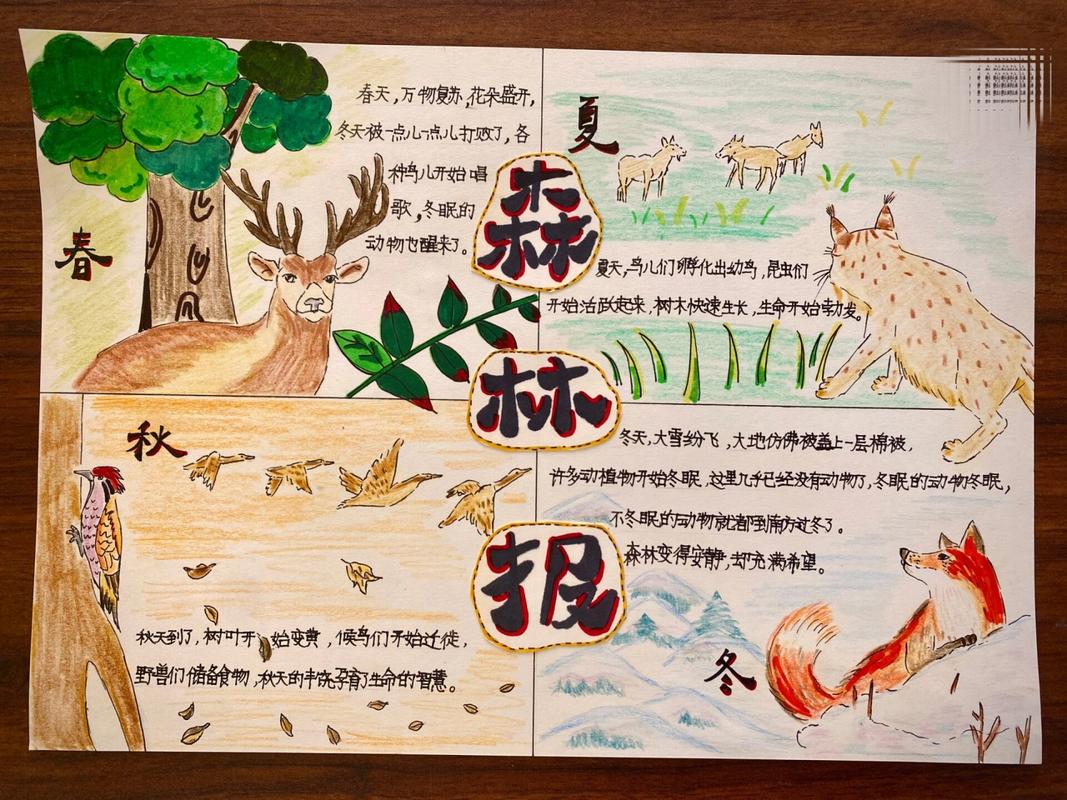 春
春天，万物复苏，花朵盛开，
冬天被一点儿一点儿打败了，各
种鸟儿开始唱
歌，冬眠的
动物也醒来了。
夏
夏天，鸟儿们孵化出幼鸟，昆虫们
开始活跃起来，树木快速生长，生命开始勃发。
森
林
报
秋
秋天到了，树叶开始变黄，候鸟们开始迁徙，
野兽们储备食物，秋天的丰饶孕育了生命的智慧。
冬天，大雪纷飞，大地仿佛被盖上一层棉被，
许多动植物开始冬眠，这里几乎已经没有动物了，冬眠的动物冬眠，
不冬眠的动物就都到南方过冬了。
森林变得安静，却充满希望。
冬